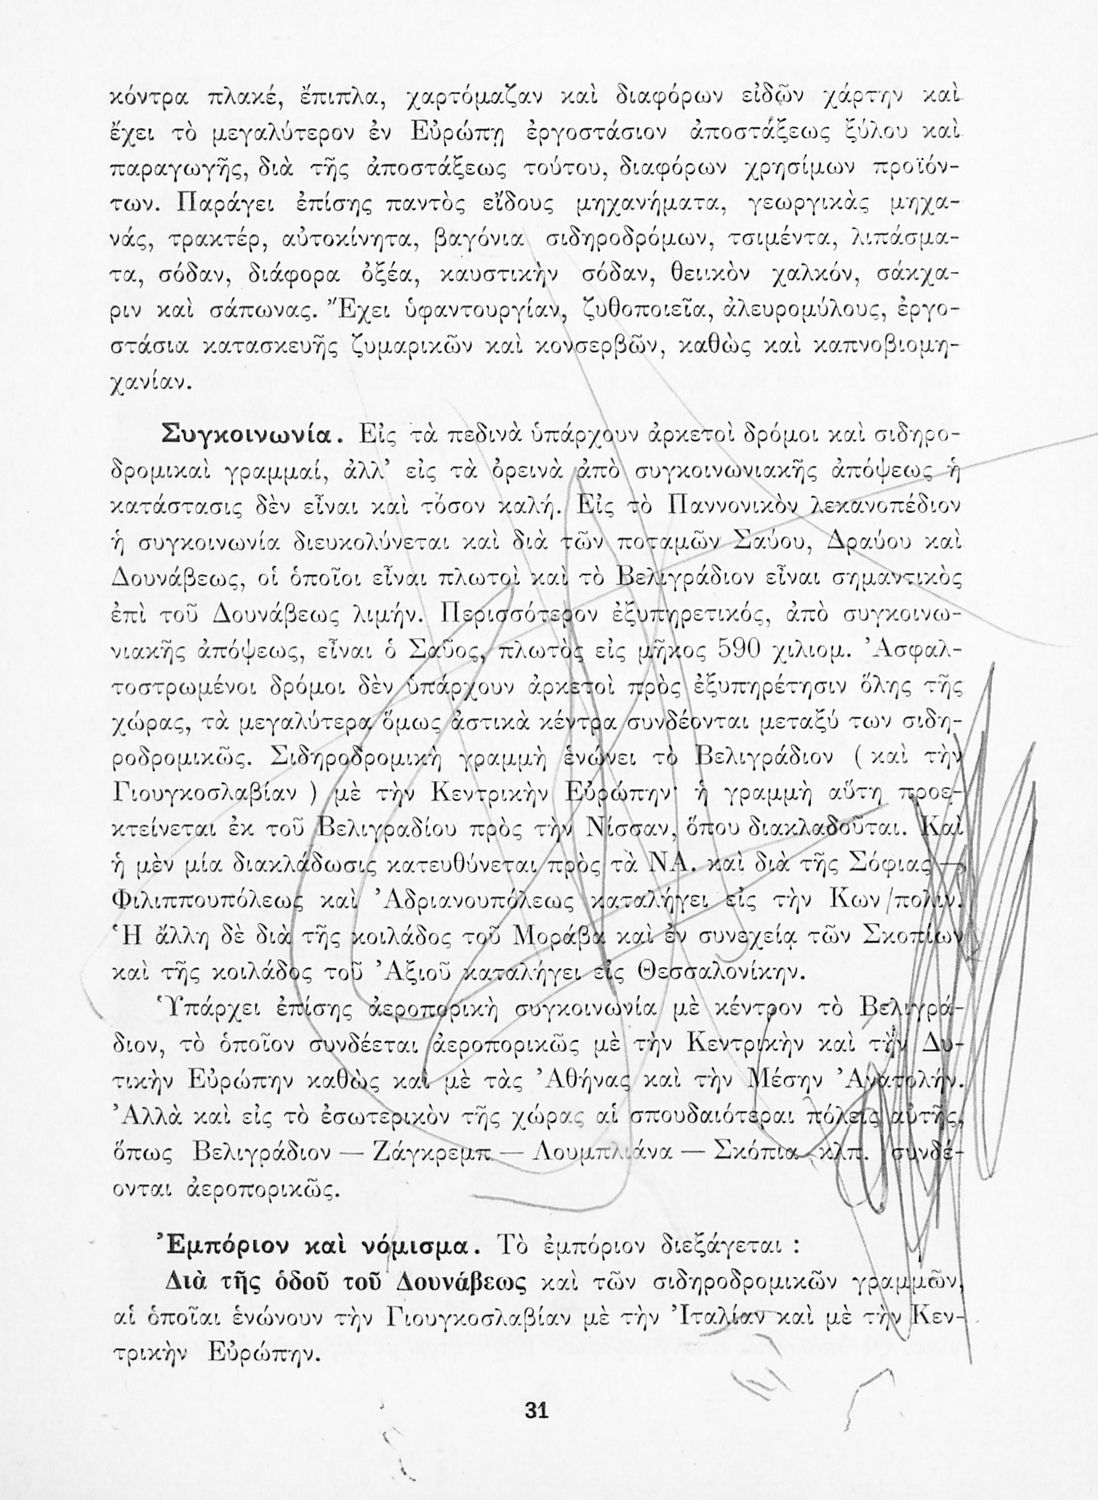 κόντρα πλακέ, ἔπιπλα, χαρτόμαζαν καὶ διαφόρων εἰδῶν χάρτην καὶ
ἔχει τὸ μεγαλύτερον ἐν Εὐρώπῃ ἐργοστάσιον ἀποστάξεως ξύλου καὶ
παραγωγῆς, διὰ τῆς ἀποστάξεως τούτου, διαφόρων χρησίμων προϊόν-
των. Παράγει ἐπίσης παντὸς εἴδους μηχανήματα, γεωργικὰς μηχα-
νάς, τρακτέρ, αὐτοκίνητα, βαγόνια σιδηροδρόμων, τσιμέντα, λιπάσμα-
τα, σόδαν, διάφορα ὀξέα, καυστικὴν σόδαν, θειικὸν χαλκόν, σάκχα-
ριν καὶ σάπωνας. Ἔχει ὑφαντουργίαν, ζυθοποιεῖα, ἀλευρομύλους, ἐργο-
στάσια κατασκευῆς ζυμαρικῶν καὶ κονσερβῶν, καθὼς καὶ καπνοβιομη-
χανίαν.
Συγκοινωνία. Εἰς τὰ πεδινὰ ὑπάρχουν ἀρκετοὶ δρόμοι καὶ σιδηρο-
δρομικαὶ γραμμαί, ἀλλ' εἰς τὰ ὀρεινὰ ἀπὸ συγκοινωνιακῆς ἀπόψεως ἡ
κατάστασις δὲν εἶναι καὶ τόσον καλή. Εἰς τὸ Παννονικὸν λεκανοπέδιον
ἡ συγκοινωνία διευκολύνεται καὶ διὰ τῶν ποταμῶν Σαύου, Δραύου καὶ
Δουνάβεως, οἱ ὁποῖοι εἶναι πλωτοὶ καὶ τὸ Βελιγράδιον εἶναι σημαντικὸς
ἐπὶ τοῦ Δουνάβεως λιμήν. Περισσότερον ἐξυπηρετικός, ἀπὸ συγκοινω-
νιακῆς ἀπόψεως, εἶναι ὁ Σαῦος, πλωτὸς εἰς μῆκος 590 χιλιομ. Ἀσφαλ-
τοστρωμένοι δρόμοι δὲν ὑπάρχουν ἀρκετοὶ πρὸς ἐξυπηρέτησιν ὅλης τῆς
χώρας, τὰ μεγαλύτερα ὅμως ἀστικὰ κέντρα συνδέονται μεταξύ των σιδη-
ροδρομικῶς. Σιδηροδρομικὴ γραμμὴ ἑνώνει τὸ Βελιγράδιον ( καὶ τὴν
Γιουγκοσλαβίαν ) μὲ τὴν Κεντρικὴν Εὐρώπην· ἡ γραμμὴ αὕτη προε-
κτείνεται ἐκ τοῦ Βελιγραδίου πρὸς τὴν Νίσσαν, ὅπου διακλαδοῦται. Καὶ
ἡ μὲν μία διακλάδωσις κατευθύνεται πρὸς τὰ ΝΑ. καὶ διὰ τῆς Σόφιας —
Φιλιππουπόλεως καὶ Ἀδριανουπόλεως καταλήγει εἰς τὴν Κων/πολιν.
Ἡ ἄλλη δὲ διὰ τῆς κοιλάδος τοῦ Μοράβα καὶ ἐν συνεχείᾳ τῶν Σκοπίων
καὶ τῆς κοιλάδος τοῦ Ἀξιοῦ καταλήγει εἰς Θεσσαλονίκην.
Ὑπάρχει ἐπίσης ἀεροπορικὴ συγκοινωνία μὲ κέντρον τὸ Βελιγρά-
διον, τὸ ὁποῖον συνδέεται ἀεροπορικῶς μὲ τὴν Κεντρικὴν καὶ τὴν Δυ-
τικὴν Εὐρώπην καθὼς καὶ μὲ τὰς Ἀθήνας καὶ τὴν Μέσην Ἀνατολήν.
Ἀλλὰ καὶ εἰς τὸ ἐσωτερικὸν τῆς χώρας αἱ σπουδαιότεραι πόλεις αὐτῆς,
ὅπως Βελιγράδιον — Ζάγκρεμπ — Λουμπλιάνα — Σκόπια κλπ. συνδέ-
ονται ἀεροπορικῶς.
Ἐμπόριον καὶ νόμισμα. Τὸ ἐμπόριον διεξάγεται :
Διὰ τῆς ὁδοῦ τοῦ Δουνάβεως καὶ τῶν σιδηροδρομικῶν γραμμῶν,
αἱ ὁποῖαι ἑνώνουν τὴν Γιουγκοσλαβίαν μὲ τὴν Ἰταλίαν καὶ μὲ τὴν Κεν-
τρικὴν Εὐρώπην.
31